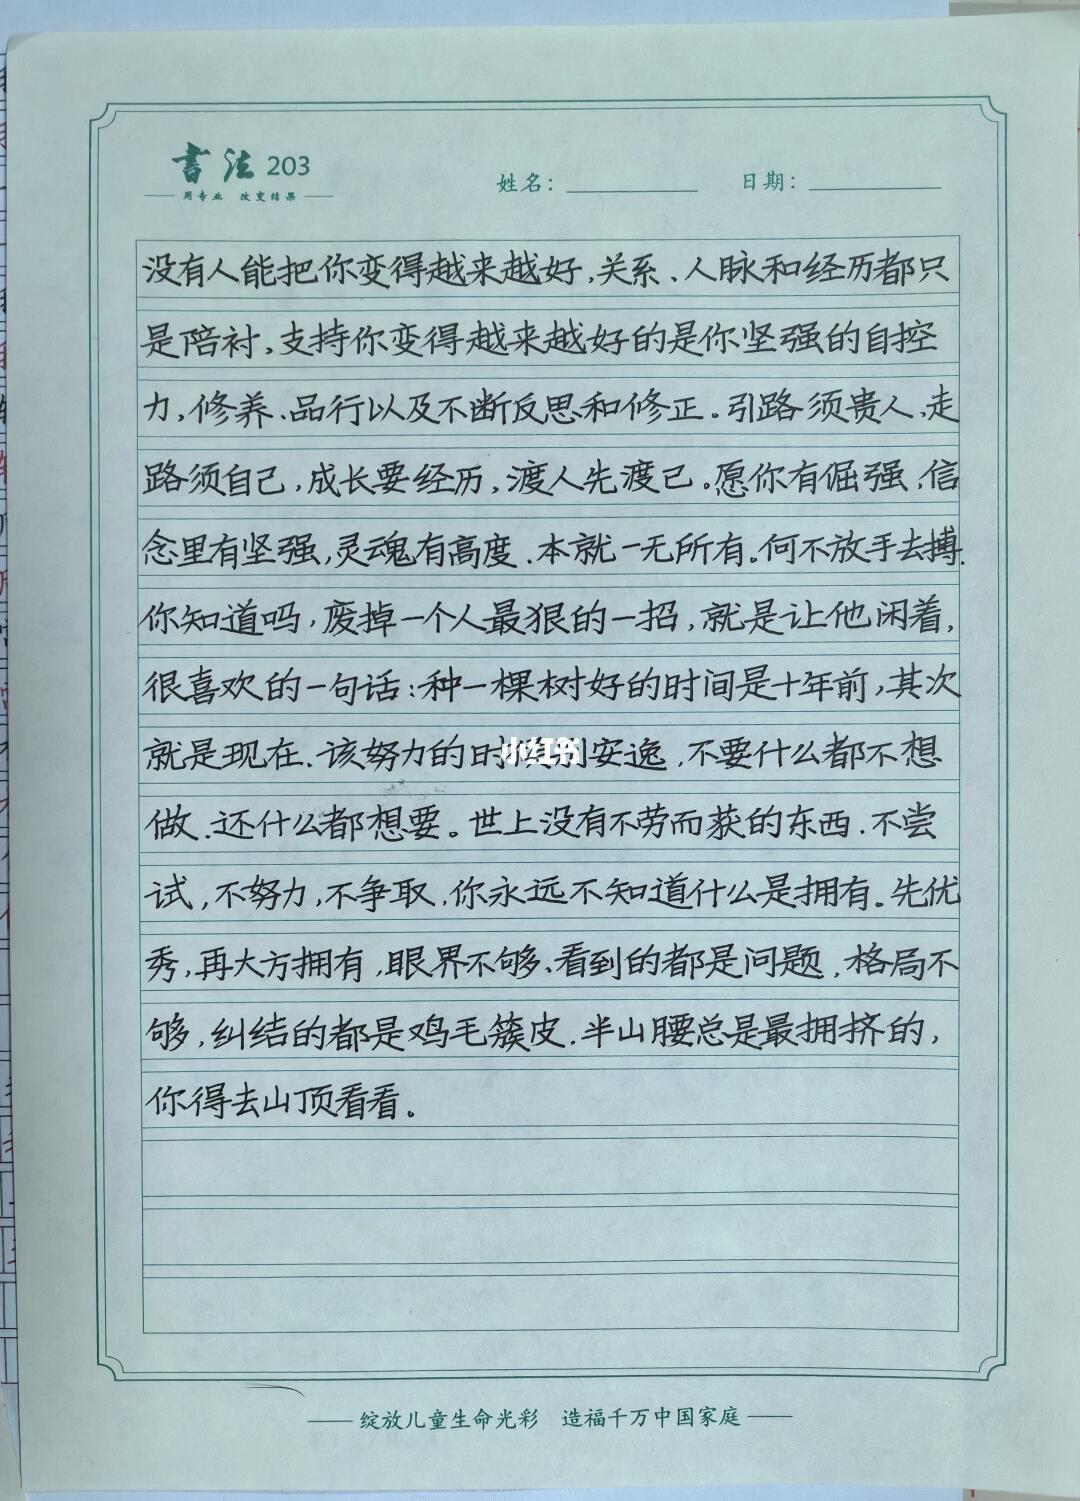 書法 203
用专业 改变结果
姓名：
日期：
没有人能把你变得越来越好,关系、人脉和经历都只
是陪衬,支持你变得越来越好的是你坚强的自控
力,修养、品行以及不断反思和修正。引路须贵人、走
路须自己,成长要经历,渡人先渡己。愿你有倔强、信
念里有坚强,灵魂有高度、本就一无所有。何不放手去搏.
你知道吗,废掉一个人最狠的一招,就是让他闲着,
很喜欢的一句话:种一棵树好的时间是十年前,其次
就是现在.该努力的时别安逸,不要什么都不想
小红书
做.还什么都想要。世上没有不劳而获的东西.不尝
试,不努力,不争取,你永远不知道什么是拥有。先优
秀,再大方拥有,眼界不够、看到的都是问题,格局不
够,纠结的都是鸡毛簇皮.半山腰总是最拥挤的,
你得去山顶看看。
绽放儿童生命光彩 造福千万中国家庭